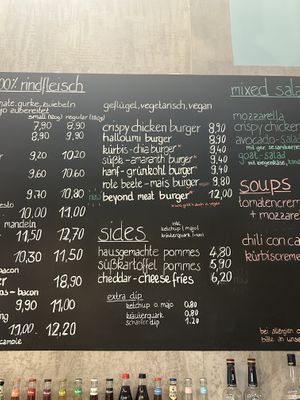 100% rindfleisch
tomate, gurke, zwiebeln
zubereitet
small (120g) regular (180g)
7,90 8,90
8,90 9,90
9,20 10,20
9,60 10,60
9,70 10,80
10,00 11,00
mandeln
11,50 12,70
10,30 11,50
bacon
18,90
bacon
9,90 11,00
11,00 12,20
geflügel, vegetarisch, vegan
crispy chicken burger 8,90
halloumi burger 9,40
kürbis-chia burger 9,40
süßk.-amaranth burger 9,40
hanf-grünkohl burger 9,40
rote beete-mais burger 9,80
beyond meat burger 12,00
sides
inkl.
ketchup | majo |
kräuterquark |
hausgemachte pommes 4,80
süßkartoffel pommes 5,90
cheddar-cheese fries 6,20
extra dip
ketchup o. majo 0.80
kräuterquark 0.80
scharfer dip 1.20
mixed sala
mozzarella
crispy chicken
avocado-salad
goat-salad
soups
tomatencrem
+ mozzare
chili con ca
kürbiscreme
bei allergien
bitte in unse